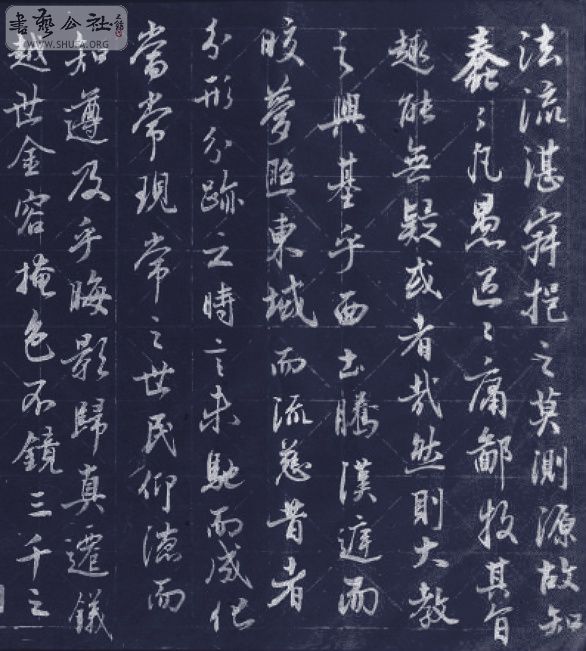 書藝公社
WWW.SHUFA.ORG
法流湛寂挹之莫測源故知
蠢々凡愚區々庸鄙投其旨
趣能無疑或者哉然則大教
之興基乎西土騰漢庭而
皎夢照東域而流慈昔者
分形分跡之時言未馳而成化
當常現常之世民仰德而
知遵及乎晦影歸真遷儀
越世金容掩色不鏡三千之